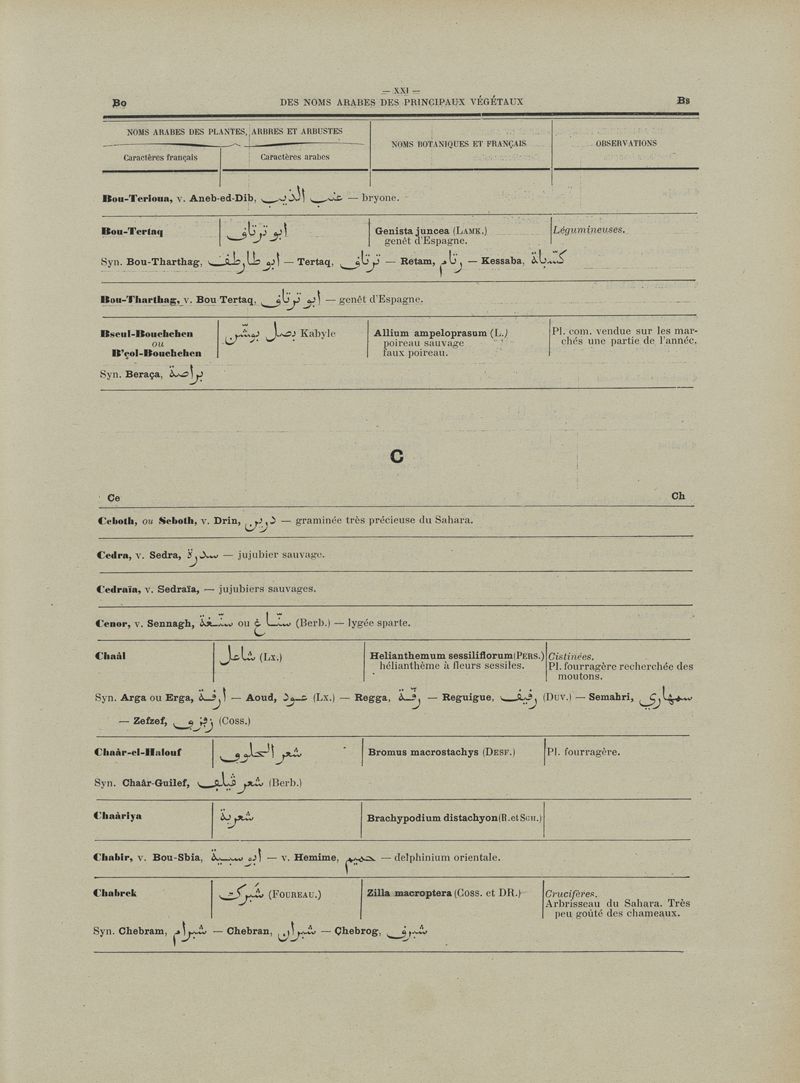 — XXI —
Bo DES NOMS ARABES DES PRINCIPAUX VÉGÉTAUX Bs
NOMS ARABES DES PLANTES, ARBRES ET ARBUSTES
NOMS BOTANIQUES ET FRANÇAIS
OBSERVATIONS
Caractères français
Caractères arabes
Bou-Terioua, v. Aneb-ed-Dib, عنب الذيب — bryone.
Bou-Tertaq
ابو ترتاق
Genista juncea (LAMK.)
genêt d'Espagne.
Légumineuses.
Syn. Bou-Tharthag, — Tertaq, ترتاق — Retam, رتام — Kessaba,
Bou-Tharthag, v. Bou Tertaq, ابو ترتاق — genêt d'Espagne.
Bseul-Bouchehen
ou
B'çol-Bouchehen
Kabyle
Allium ampeloprasum (L.)
poireau sauvage
faux poireau.
Pl. com. vendue sur les mar-
chés une partie de l'année.
Syn. Beraça, براصة
C
Ce Ch
Ceboth, ou Seboth, v. Drin, درين — graminée très précieuse du Sahara.
Cedra, v. Sedra, سدرة — jujubier sauvage.
Cedraïa, v. Sedraïa, — jujubiers sauvages.
Cenor, v. Sennagh, ou (Berb.) — lygée sparte.
Chaâl
شاعل (Lx.)
Helianthemum sessiliflorum (PERS.)
hélianthème à fleurs sessiles.
Cistinées.
Pl. fourragère recherchée des
moutons.
Syn. Arga ou Erga, — Aoud, عود (Lx.) — Regga, — Reguigue, (Duv.) — Semahri, سمهري
— Zefzef, (Coss.)
Chaâr-el-Halouf
شعر الحلوف
Bromus macrostachys (DESF.)
Pl. fourragère.
Syn. Chaâr-Guilef, (Berb.)
Chaâriya
شعرية
Brachypodium distachyon (R. et SCH.)
Chabir, v. Bou-Sbia, — v. Hemime, — delphinium orientale.
Chabrek
شبركـ (FOUREAU.)
Zilla macroptera (Coss. et DR.)
Crucifères.
Arbrisseau du Sahara. Très
peu goûté des chameaux.
Syn. Chebram, شبرام — Chebran, شبران — Çhebrog, شبرق